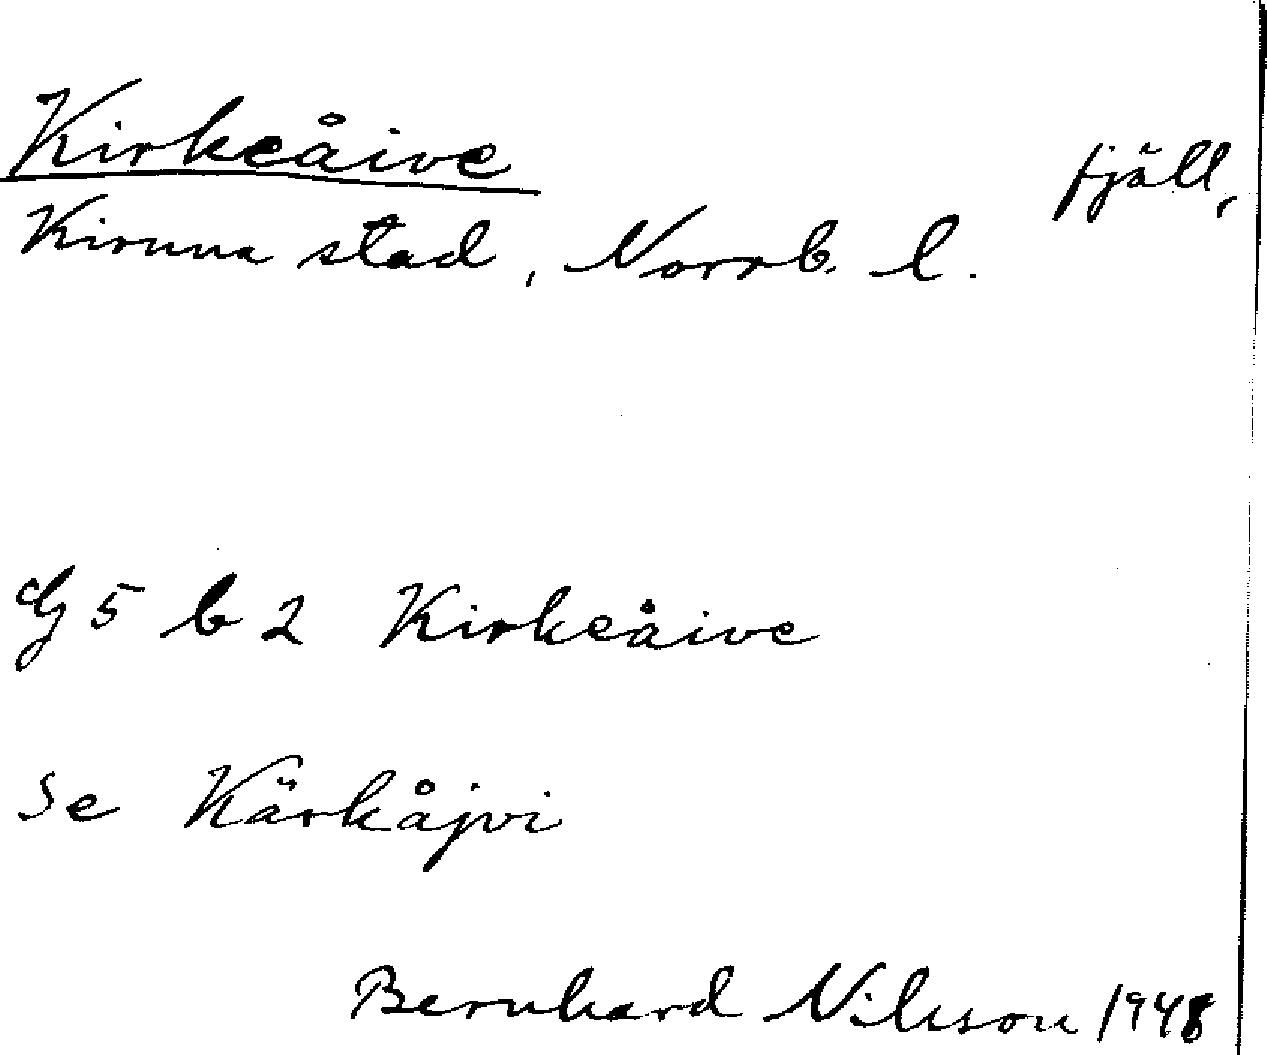 Kirkeåive fjäll,
Kiruna stad, Norrb. l.
G 5 b 2 Kirkeåive
Se Kärkåjvi
Bernhard Nilsson 1948